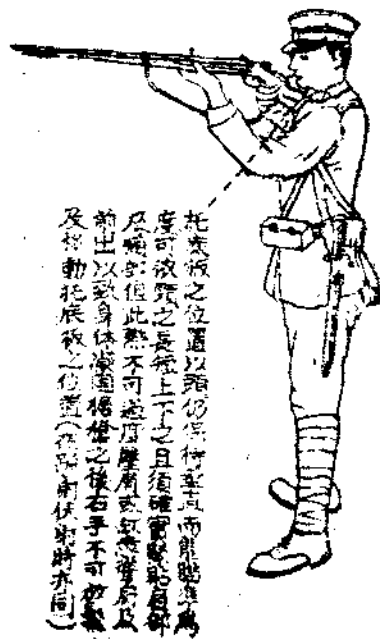 托底板之位置以頭仍保持垂直而能瞄準為
度可依頸之長短上下之且須確實緊貼肩部
及頰部但此際不可過度聳肩
前出以致身体凝固據槍之後右手不可
及移動托底板之位置(跪射伏射時亦同)